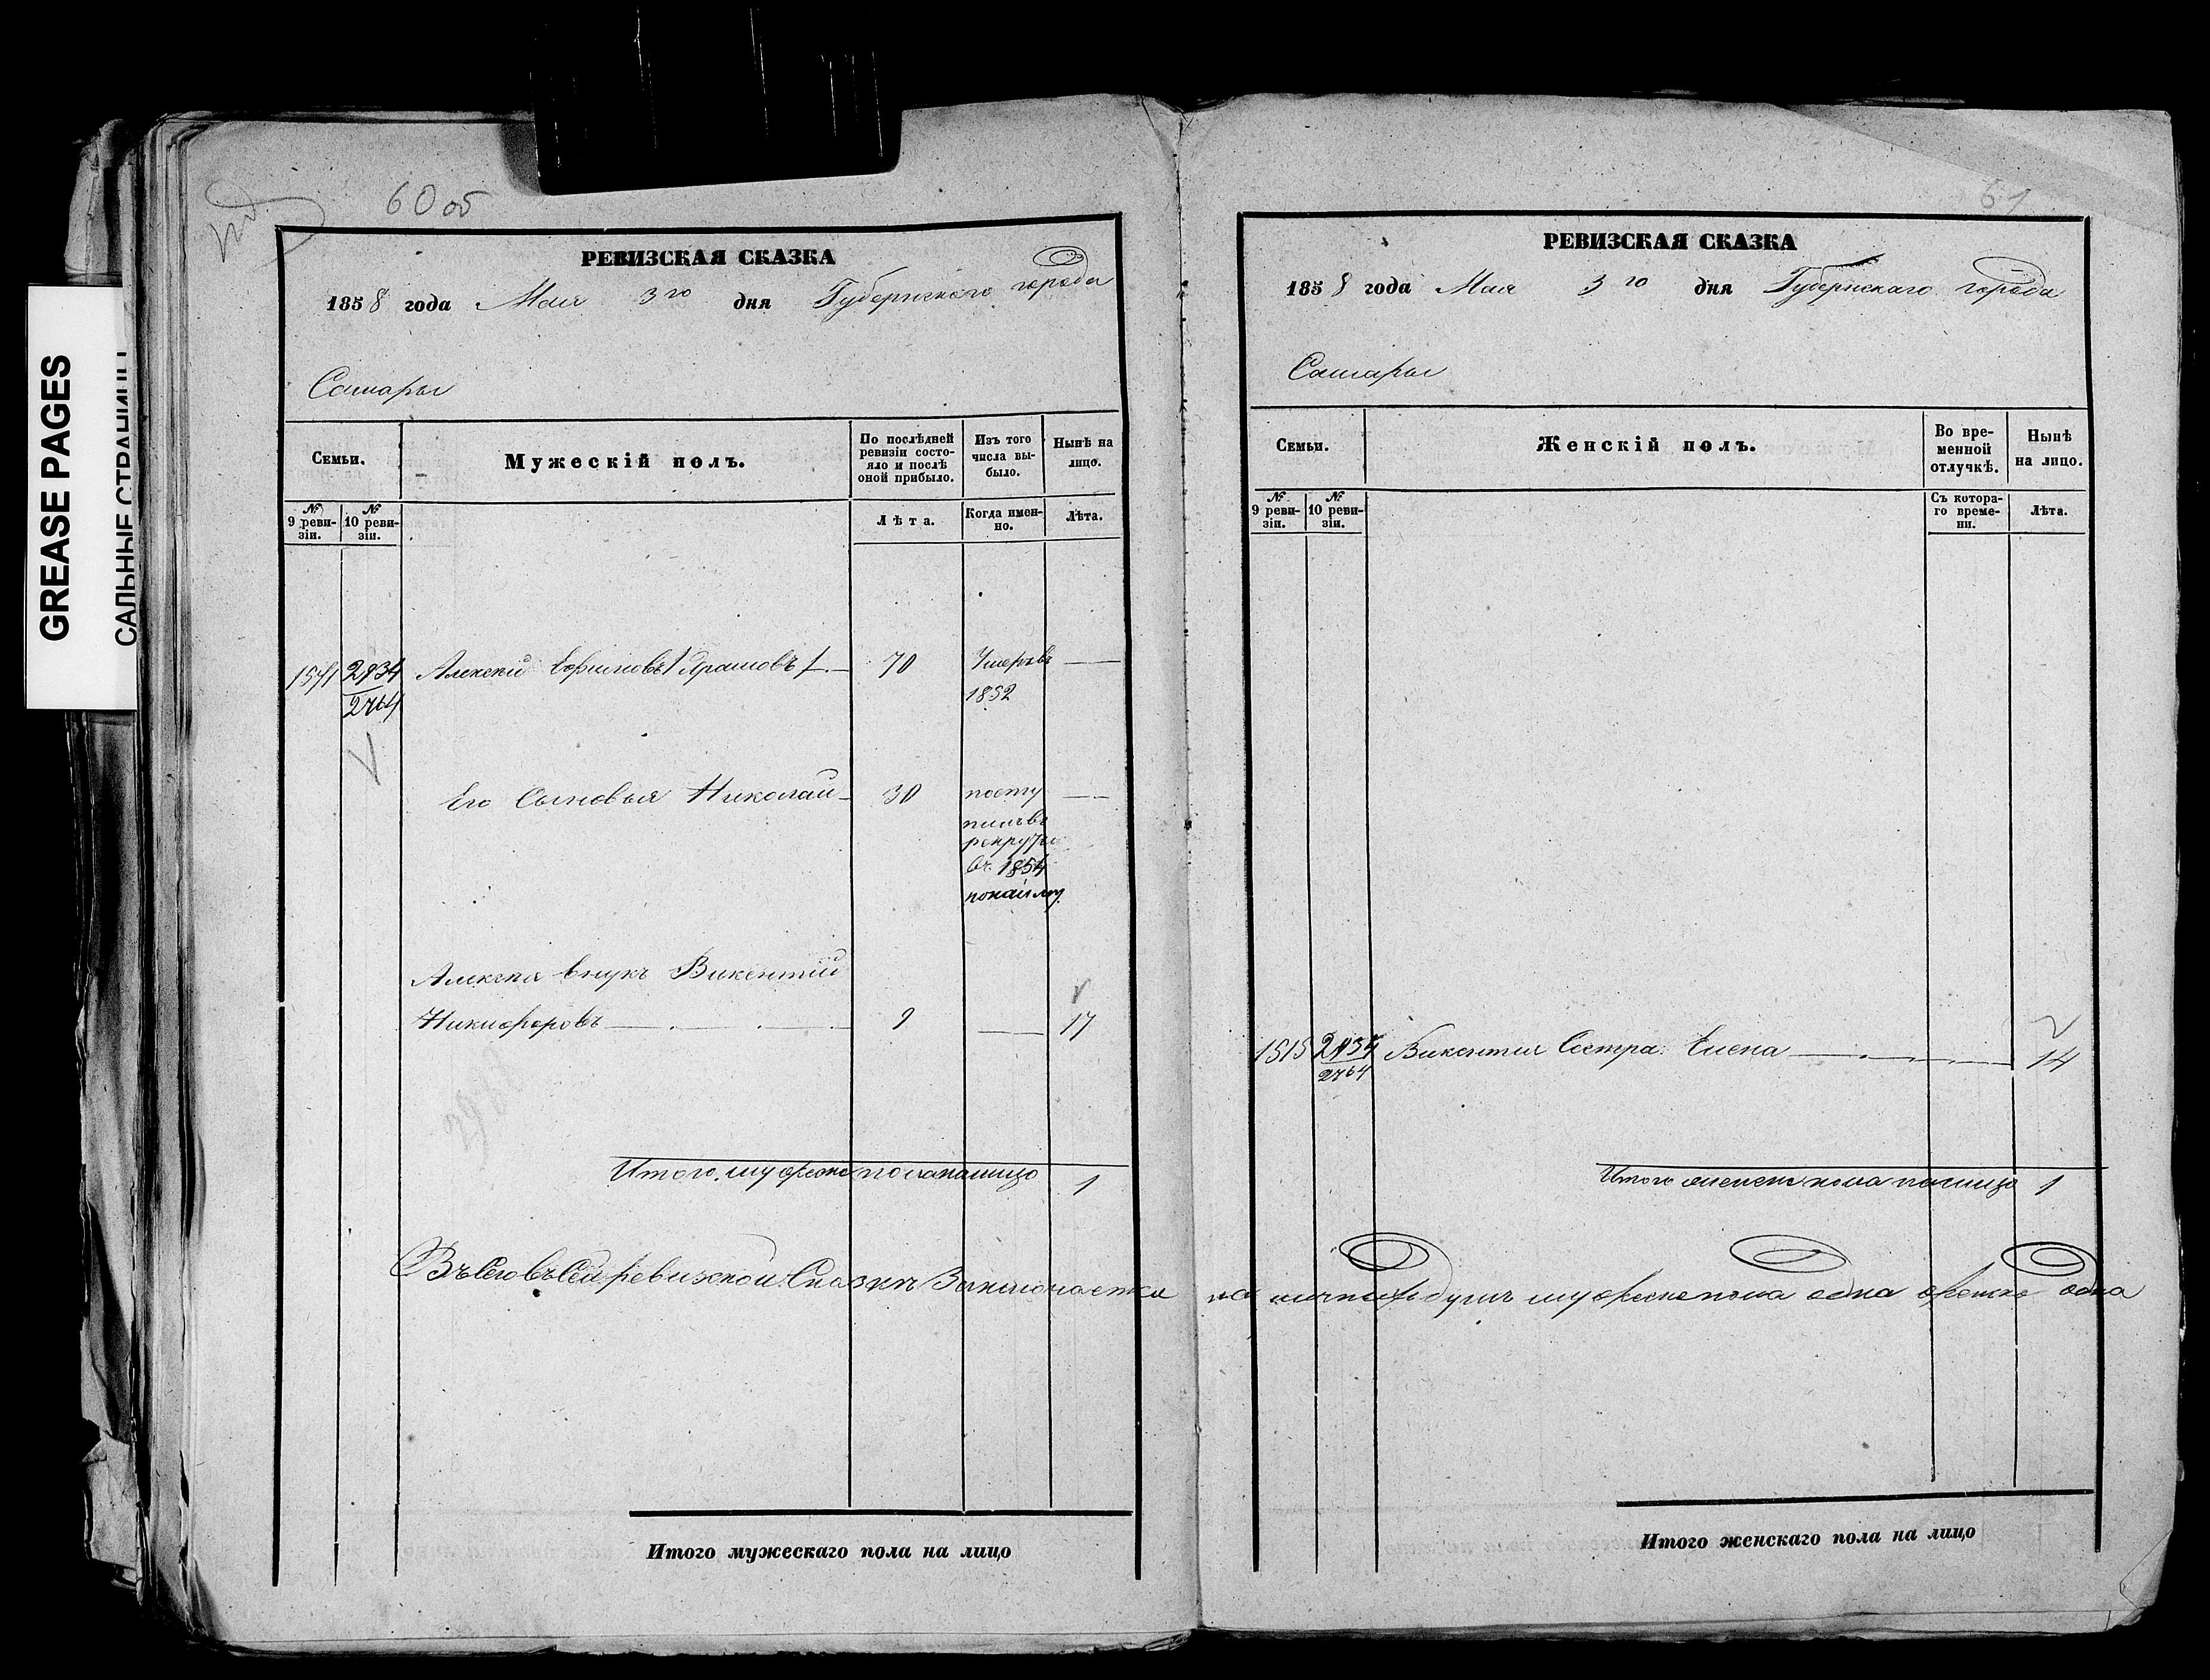 GREASE PAGES
САЛЬНЫЕ СТРАНИЦЫ
60 об
РЕВИЗСКАЯ СКАЗКА
1858 года Мая 3го дня Губернскаго города
Самары
Семьи.
Мужескій полъ.
По послѣдней ревизіи состояло и послѣ оной прибыло.
Изъ того числа выбыло.
Нынѣ на лицо.
№ 9 ревизіи.
№ 10 ревизіи.
Лѣта.
Когда именно.
Лѣта.
1541 2734 Алексей Ефимовъ 70 Умеръ въ —
2764 1852
Его Сыновья Николай 30 посту —
пилъ въ
рекруты
въ 1854
по найму
Алексея внукъ Викентий
Никифоровъ 9 — 17
Итого мужеска пола налицо 1
61
РЕВИЗСКАЯ СКАЗКА
1858 года Мая 3го дня Губернскаго города
Самары
Семьи.
Женскій полъ.
Во временной отлучкѣ.
Нынѣ на лицо.
№ 9 ревизіи.
№ 10 ревизіи.
Съ котораго времени.
Лѣта.
1515 2734 Викентия Сестра Елена — 14
2764
Итого женска пола налицо 1
Всего въ сей ревизской Сказкѣ Заключается налично душъ мужеска пола одна женска одна
Итого мужескаго пола на лицо
Итого женскаго пола на лицо